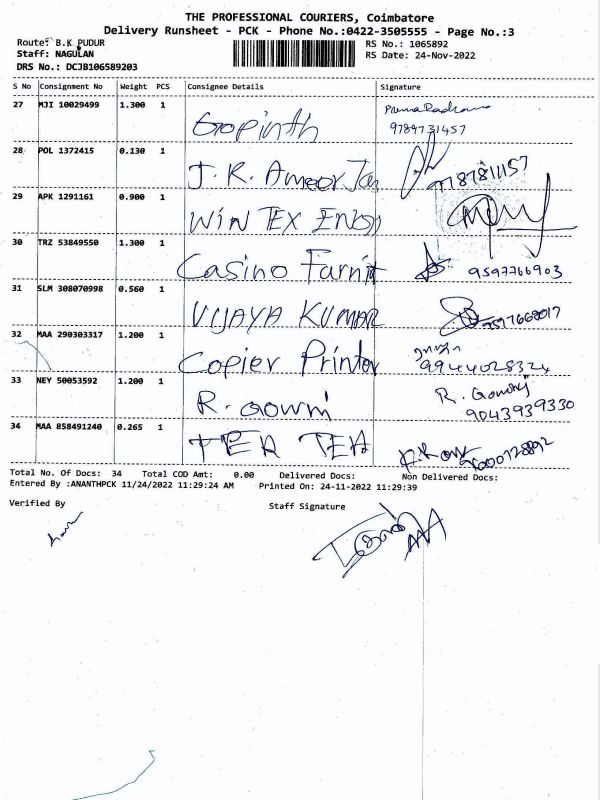 THE PROFESSIONAL COURIERS, Coimbatore
Delivery Runsheet - PCK - Phone No.:0422-3505555 - Page No.:3
Route: B.K PUDUR
RS No.: 1065892
Staff: NAGULAN
RS Date: 24-Nov-2022
DRS No.: DCJB106589203
S No Consignment No Weight PCS Consignee Details Signature
27 MJI 10029499 1.300 1 Gopinth
9789731457
28 POL 1372415 0.130 1 J. R. Ameer Jan
29 APK 1291161 0.900 1 WIN TEX ENGg
30 TRZ 53849550 1.300 1 Casino Farnit 9597766903
31 SLM 308070998 0.560 1 VIJAYA KUMAR
32 MAA 290303317 1.200 1 Copier Printer 9944028324
33 NEY 50053592 1.200 1 R. Gowri R. Gowri
9043939330
34 MAA 858491240 0.265 1 TER TEA
Total No. Of Docs: 34 Total COD Amt: 0.00 Delivered Docs: Non Delivered Docs:
Entered By :ANANTHPCK 11/24/2022 11:29:24 AM Printed On: 24-11-2022 11:29:39
Verified By Staff Signature